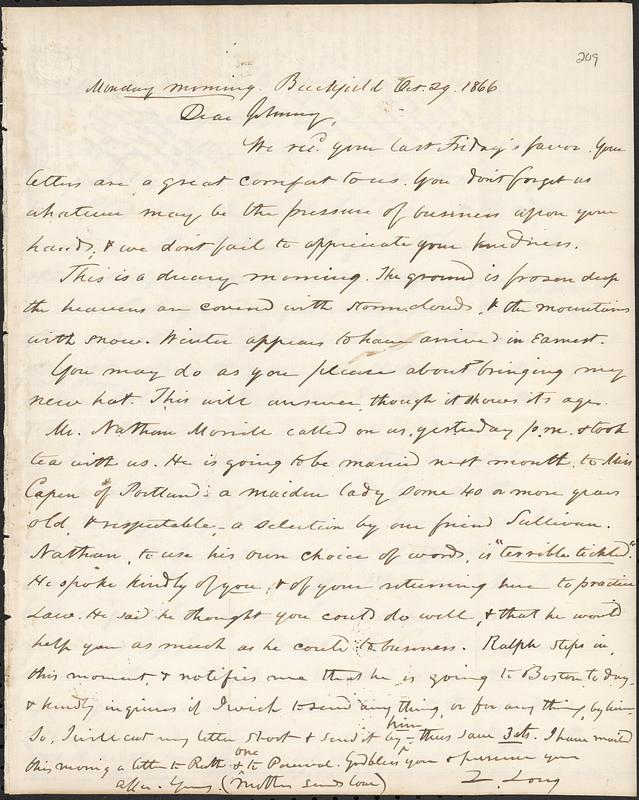 209
Monday morning. Buckfield Oct. 29. 1866
Dear Johnny,
We recd. your last Friday's favor. Your
letters are a great comfort to us. You don't forget us
whatever may be the pressure of business upon your
hands, & we don't fail to appreciate your kindness.
This is a dreary morning. The ground is frozen deep
the heavens are covered with storm clouds, & the mountains
with snow. Winter appears to have arrived in earnest.
You may do as you please about bringing my
new hat. This will answer, though it shows its age.
Mr. Nathan Morrill called on us, yesterday p.m. & took
tea with us. He is going to be married next month to Miss
Capen of Portland: a maiden lady some 40 or more years
old, & respectable, - a selection by our friend Sullivan.
Nathan, to use his own choice of words, is "terrible tickled".
He spoke kindly of you, & of your returning here to practice
Law. He said he thought you could do well, & that he would
help you as much as he could to business. Ralph steps in,
this moment, & notifies me that he is going to Boston to day,
& kindly inquires if I wish to send any thing, or for any thing, by him.
So, I will cut my letter short & send it by him - thus save 3 cts. I have mailed
this morning a letter to Ruth & one to Percival. God bless you & preserve you
affec. Yours. (Mother sends love) Z. Long